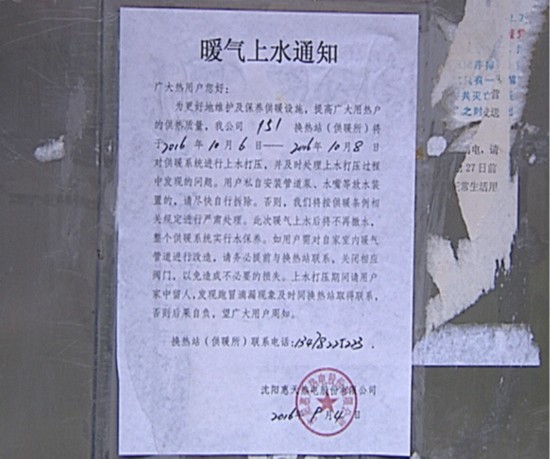 暖气上水通知
广大热用户您好:
为更好地维护及保养供暖设施,提高广大用热户
的供热质量,我公司 151 换热站(供暖所)将
于2016年10月6日——2016年10月8日
对供暖系统进行上水打压,并及时处理上水打压过程
中发现的问题。用户私自安装管道泵、水嘴等放水装
置的,请尽快自行拆除。否则,我们将按供暖条例相
关规定进行严肃处理。此次暖气上水后将不再撤水,
整个供暖系统实行水保养。如用户需对自家室内暖气
管道进行改造,请务必提前与换热站联系,关闭相应
阀门,以免造成不必要的损失。上水打压期间请用户
家中留人,发现跑冒滴漏现象及时同换热站取得联系,
否则后果自负,望广大用户周知。
换热站(供暖所)联系电话:
沈阳惠天热电股份有限公司
2016年9月4日
只有一
共灭亡
之则
27日前
正常生活用